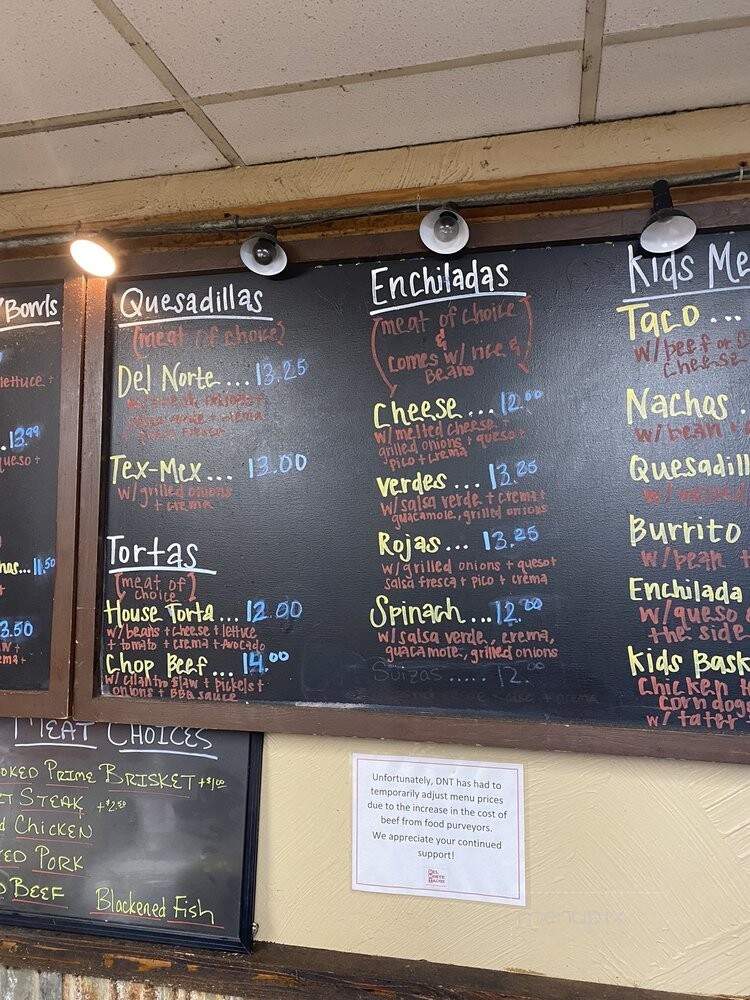 Bowls
lettuce +
.13.99
queso +
...11.50
3.50
Quesadillas
(meat of choice)
Del Norte ... 13.25
Tex-Mex ... 13.00
w/grilled onions
+ crema
Tortas
(meat of
choice)
House Torta ... 12.00
w/beans + cheese + lettuce
+ tomato + crema + avocado
Chop Beef ... 14.00
w/cilantro slaw + pickels +
onions + BBQ sauce
Enchiladas
(meat of choice
&
comes w/ rice &
Beans
Cheese ... 12.00
w/melted cheese +
grilled onions + queso +
pico + crema
Verdes ... 13.25
w/salsa verde + crema +
guacamole, grilled onions
Rojas ... 13.25
w/grilled onions + queso +
salsa fresca + pico + crema
Spinach ... 12.00
w/salsa verde, crema,
guacamole, grilled onions
Suizas ..... 12.
Kids Me
Taco ...
w/beef or
cheese
Nachos
w/bean
Quesadill
Burrito
w/bean +
Enchilada
w/queso
the side
Kids Bask
Chicken
corn dog
w/tater
Meat Choices
oked Prime Brisket +$1.00
Steak +$2.50
d Chicken
ed Pork
Beef
Blackened Fish
Unfortunately, DNT has had to
temporarily adjust menu prices
due to the increase in the cost of
beef from food purveyors.
We appreciate your continued
support!
menupix